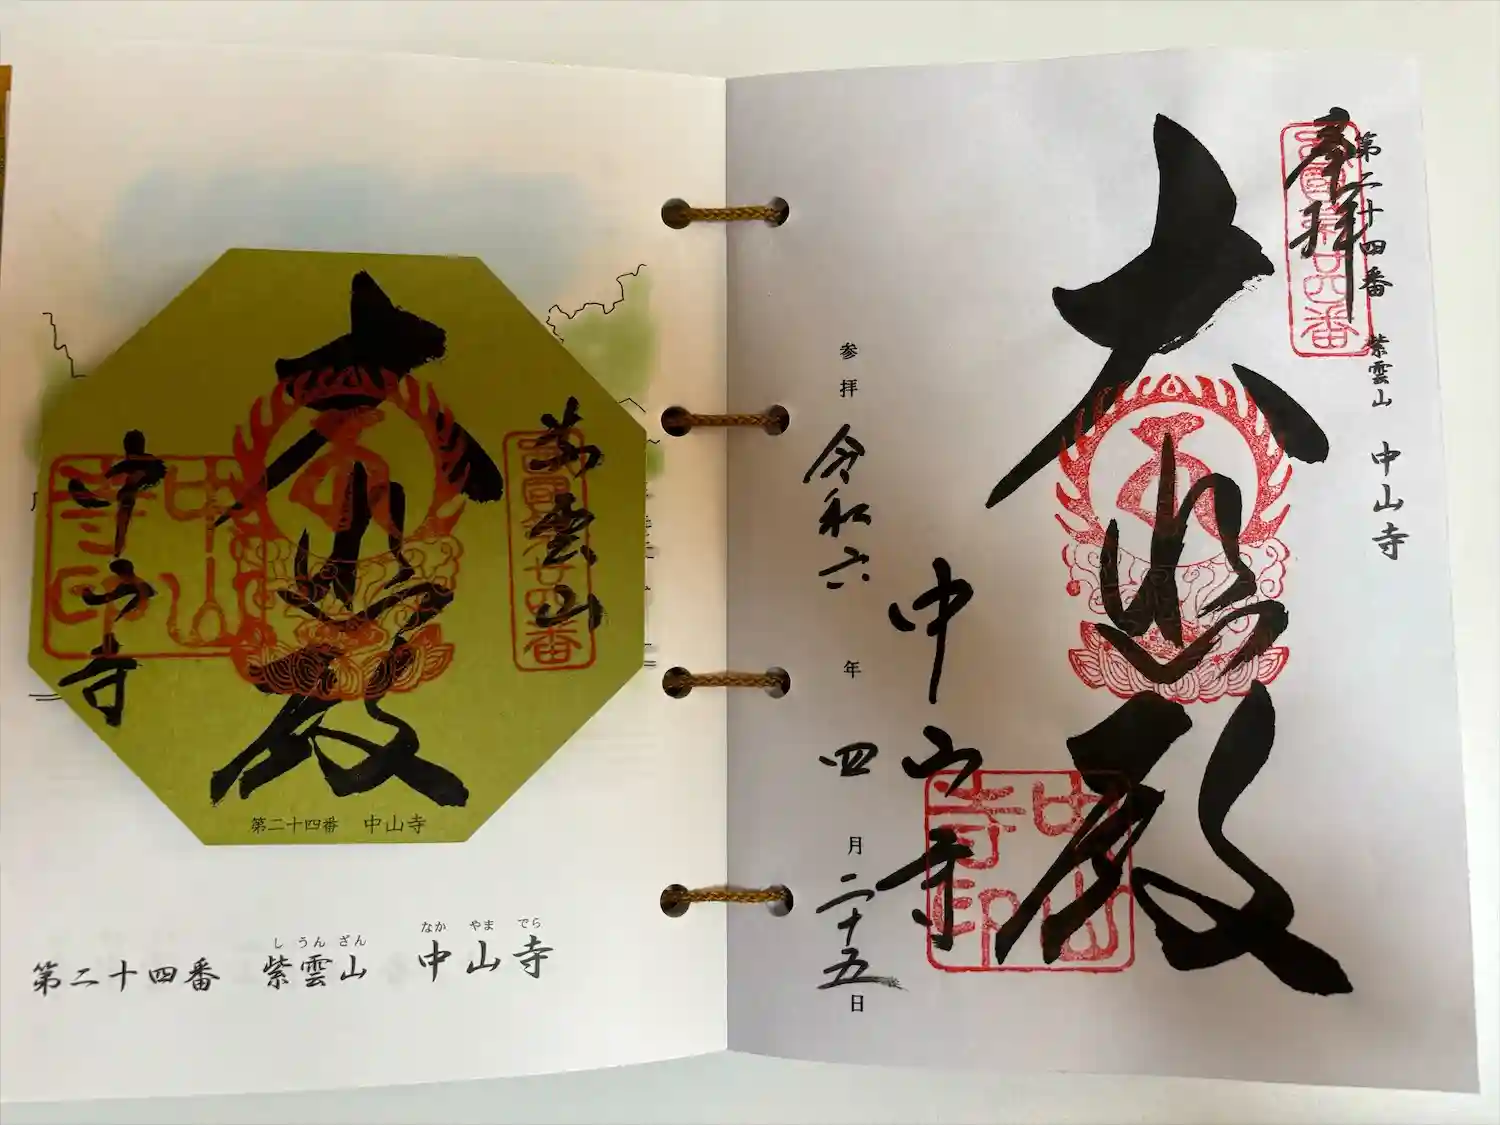 奉拝
第二十四番 紫雲山 中山寺
西国第廿四番
大悲殿
中山寺
中山寺印
参拝 令和六年 四月二十五日
紫雲山
西国第廿四番
大悲殿
中山寺
中山寺印
第二十四番 中山寺
し うん ざん なか やま でら
第二十四番 紫雲山 中山寺